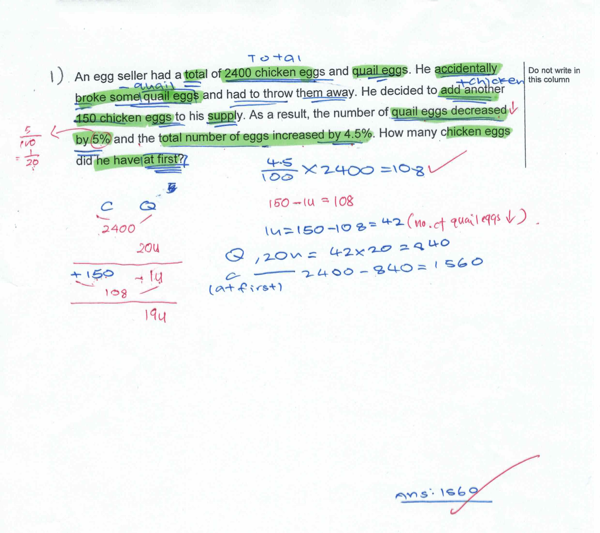 Total
1) An egg seller had a total of 2400 chicken eggs and quail eggs. He accidentally
- quail + chicken
broke some quail eggs and had to throw them away. He decided to add another
150 chicken eggs to his supply. As a result, the number of quail eggs decreased ↓
by 5% and the total number of eggs increased by 4.5%. How many chicken eggs
did he have at first?
Do not write in
this column
5/100
= 1/20
4.5/100 × 2400 = 108
150 - 1u = 108
1u = 150 - 108 = 42 (no. of quail eggs ↓).
Q, 20u = 42 × 20 = 840
C — 2400 - 840 = 1560
(at first)
C Q
2400
20u
+150 - 1u
108
19u
ans: 1560